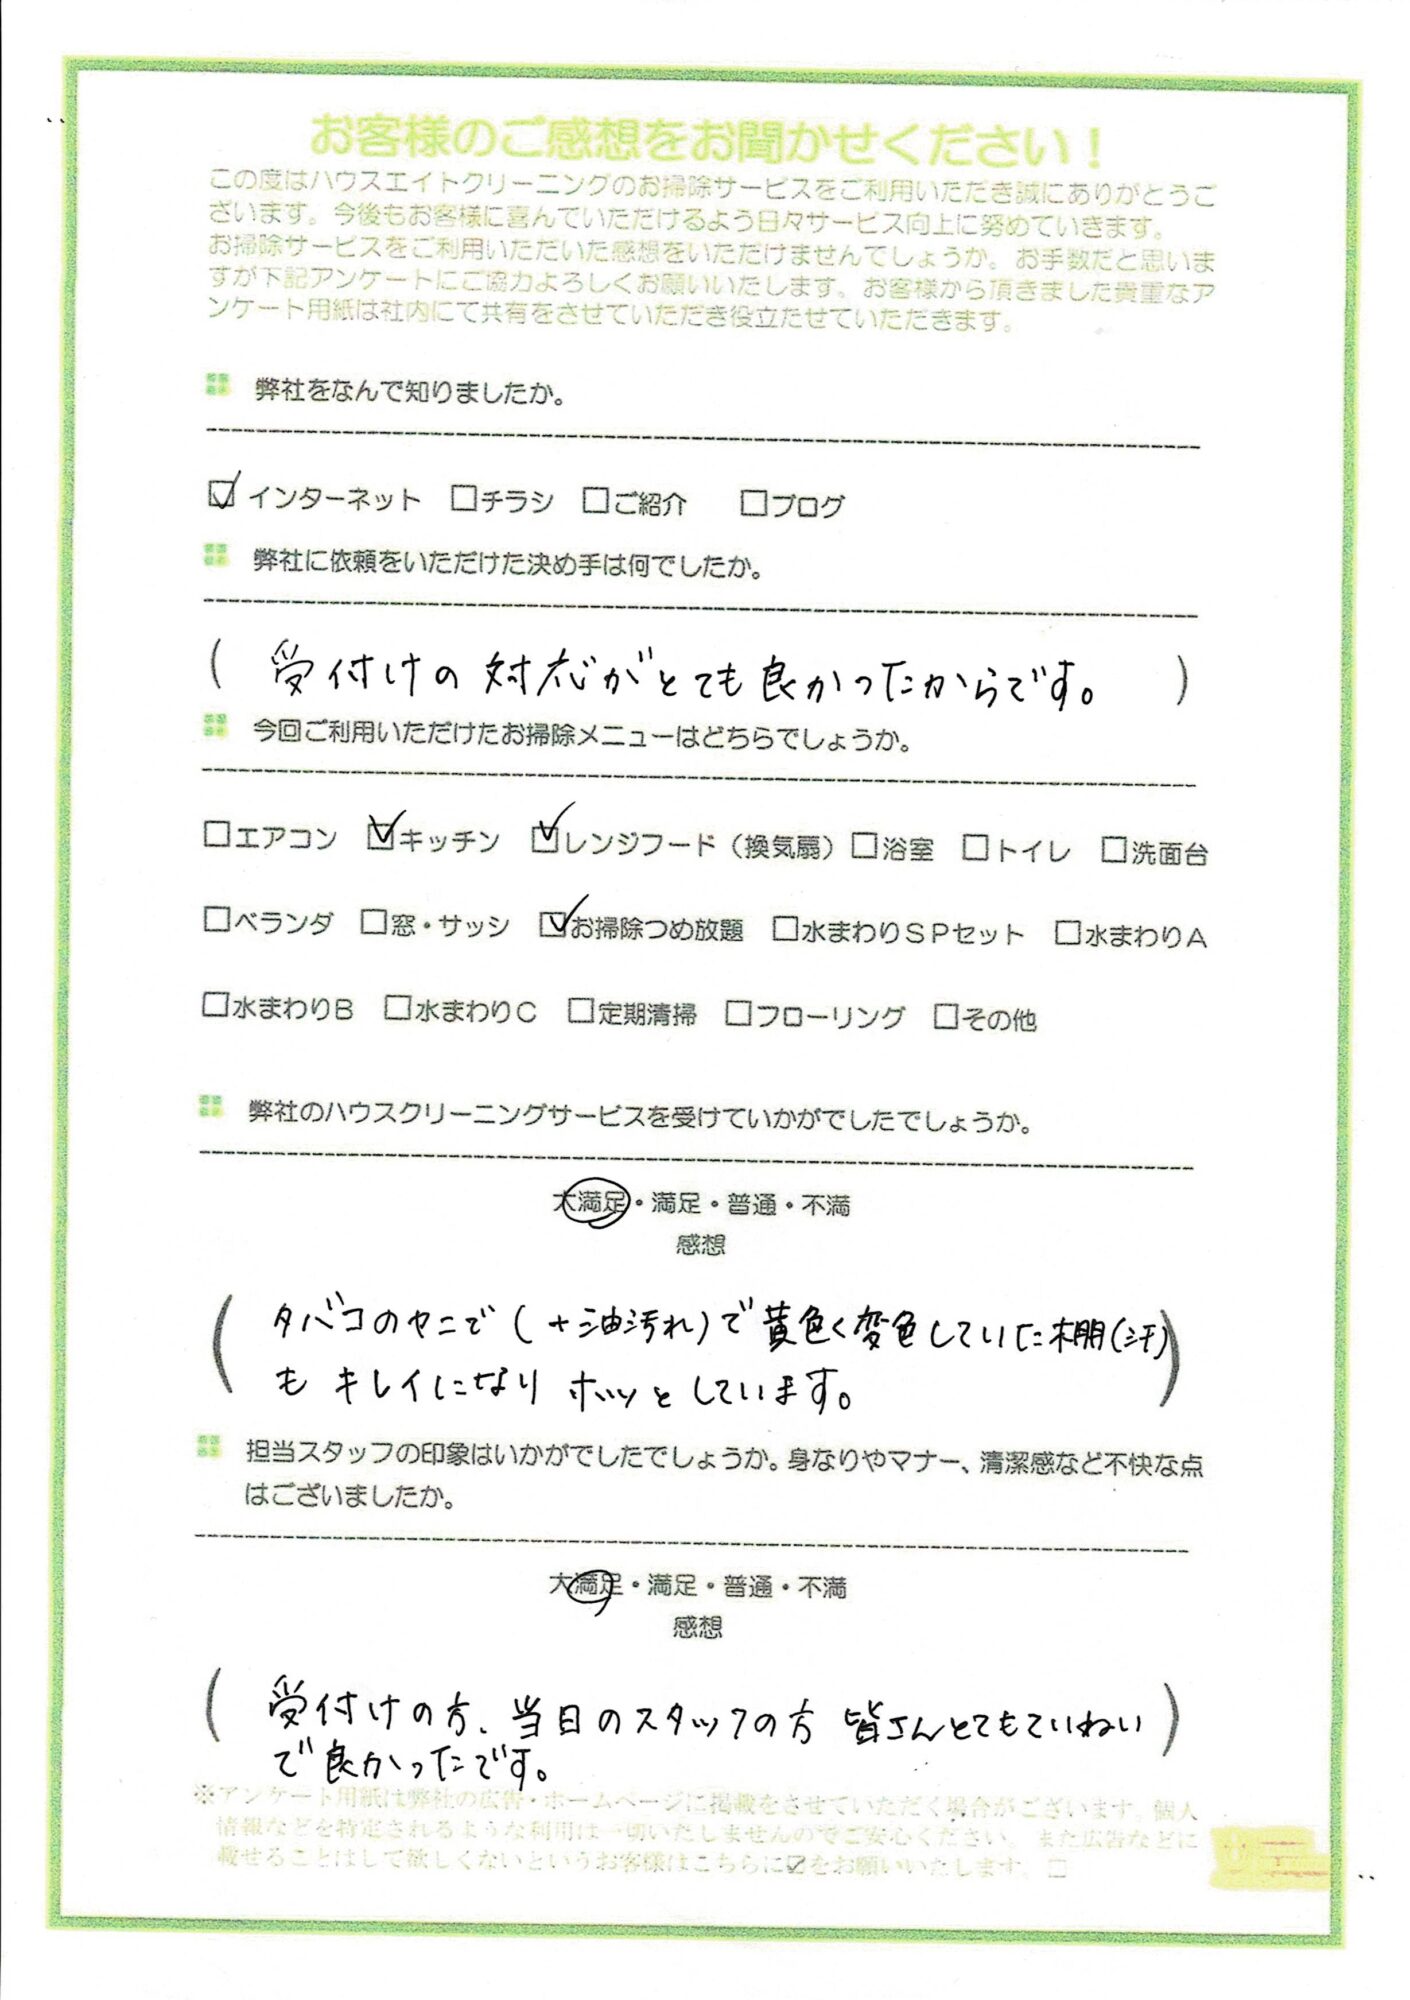 お客様のご感想をお聞かせください！
この度はハウスエイトクリーニングのお掃除サービスをご利用いただき誠にありがとうご
ざいます。今後もお客様に喜んでいただけるよう日々サービス向上に努めていきます。
お掃除サービスをご利用いただいた感想をいただけませんでしょうか。お手数だと思いま
すが下記アンケートにご協力よろしくお願いいたします。お客様から頂きました貴重なア
ンケート用紙は社内にて共有をさせていただき役立たせていただきます。
弊社をなんで知りましたか。
☑インターネット □チラシ □ご紹介 □ブログ
弊社に依頼をいただけた決め手は何でしたか。
（ 受付けの対応がとても良かったからです。 ）
今回ご利用いただけたお掃除メニューはどちらでしょうか。
□エアコン ☑キッチン ☑レンジフード（換気扇）□浴室 □トイレ □洗面台
□ベランダ □窓・サッシ ☑お掃除つめ放題 □水まわりＳＰセット □水まわりＡ
□水まわりＢ □水まわりＣ □定期清掃 □フローリング □その他
弊社のハウスクリーニングサービスを受けていかがでしたでしょうか。
大満足・満足・普通・不満
感想
（ タバコのヤニで(+油汚れ)で黄色く変色していた棚(汗)
も キレイになり ホッとしています。 ）
担当スタッフの印象はいかがでしたでしょうか。身なりやマナー、清潔感など不快な点
はございましたか。
大満足・満足・普通・不満
感想
（ 受付けの方、当日のスタッフの方 皆さんとてもていねい
で良かったです。 ）
※アンケート用紙は弊社の広告・ホームページに掲載をさせていただく場合がございます。個人
情報などを特定されるような利用は一切いたしませんのでご安心ください。また広告などに
載せることはして欲しくないというお客様はこちらに☑をお願いいたします。□